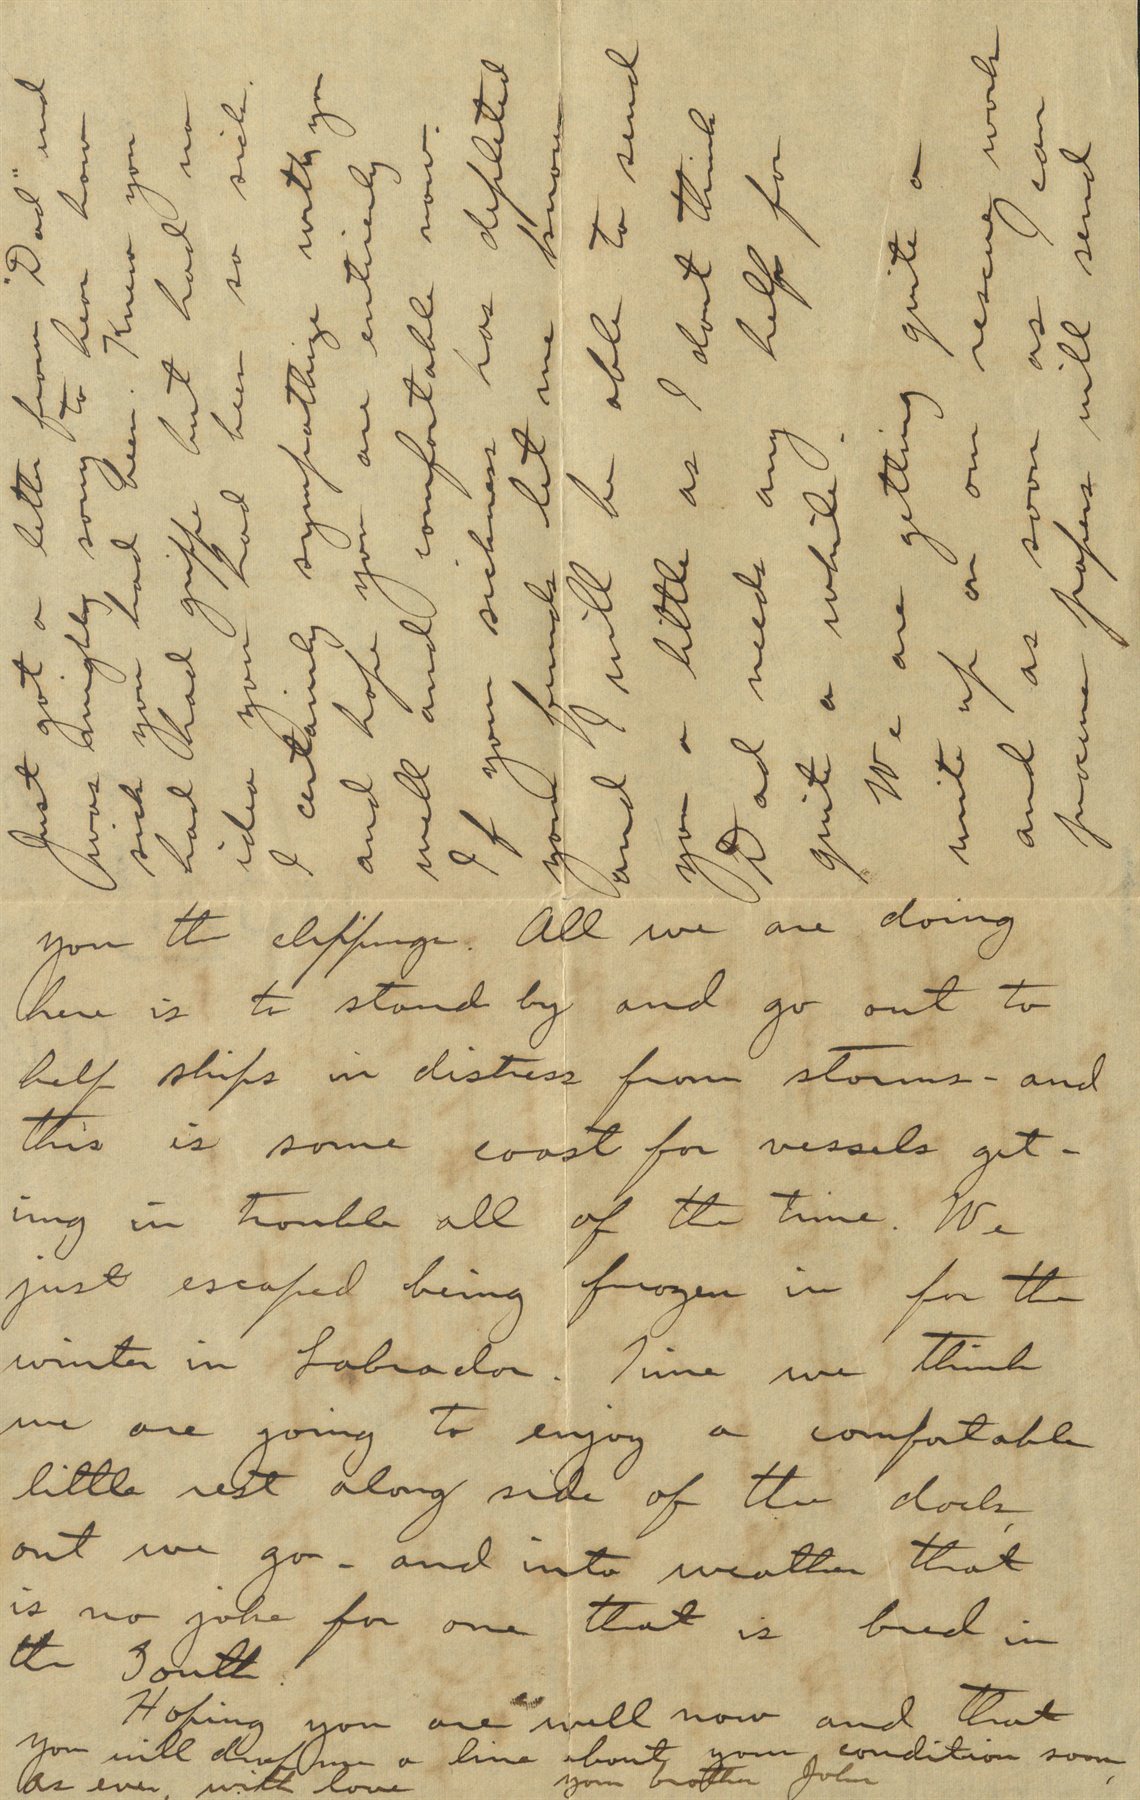 Just got a letter from "Dad" and
was mighty sorry to hear how
sick you had been. Knew you
had had grippe but had no
idea you had been so sick.
I certainly sympathize with you
and hope you are entirely
well and comfortable now.
If your sickness has depleted
your funds let me know
and I will be able to send
you a little as I dont think
Dad needs any help for
quite a while.
We are getting quite a
write up on our rescue work
and as soon as I can
procure papers will send
you the clippings. All we are doing
here is to stand by and go out to
help ships in distress from storms - and
this is some coast for vessels get-
ing in trouble all of the time. We
just escaped being frozen in for the
winter in Labrador. Time we think
we are going to enjoy a comfortable
little rest along side of the dock,
out we go - and into weather that
is no joke for one that is bred in
the South.
Hoping you are well now and that
you will drop me a line about your condition soon,
As ever, with love your brother John